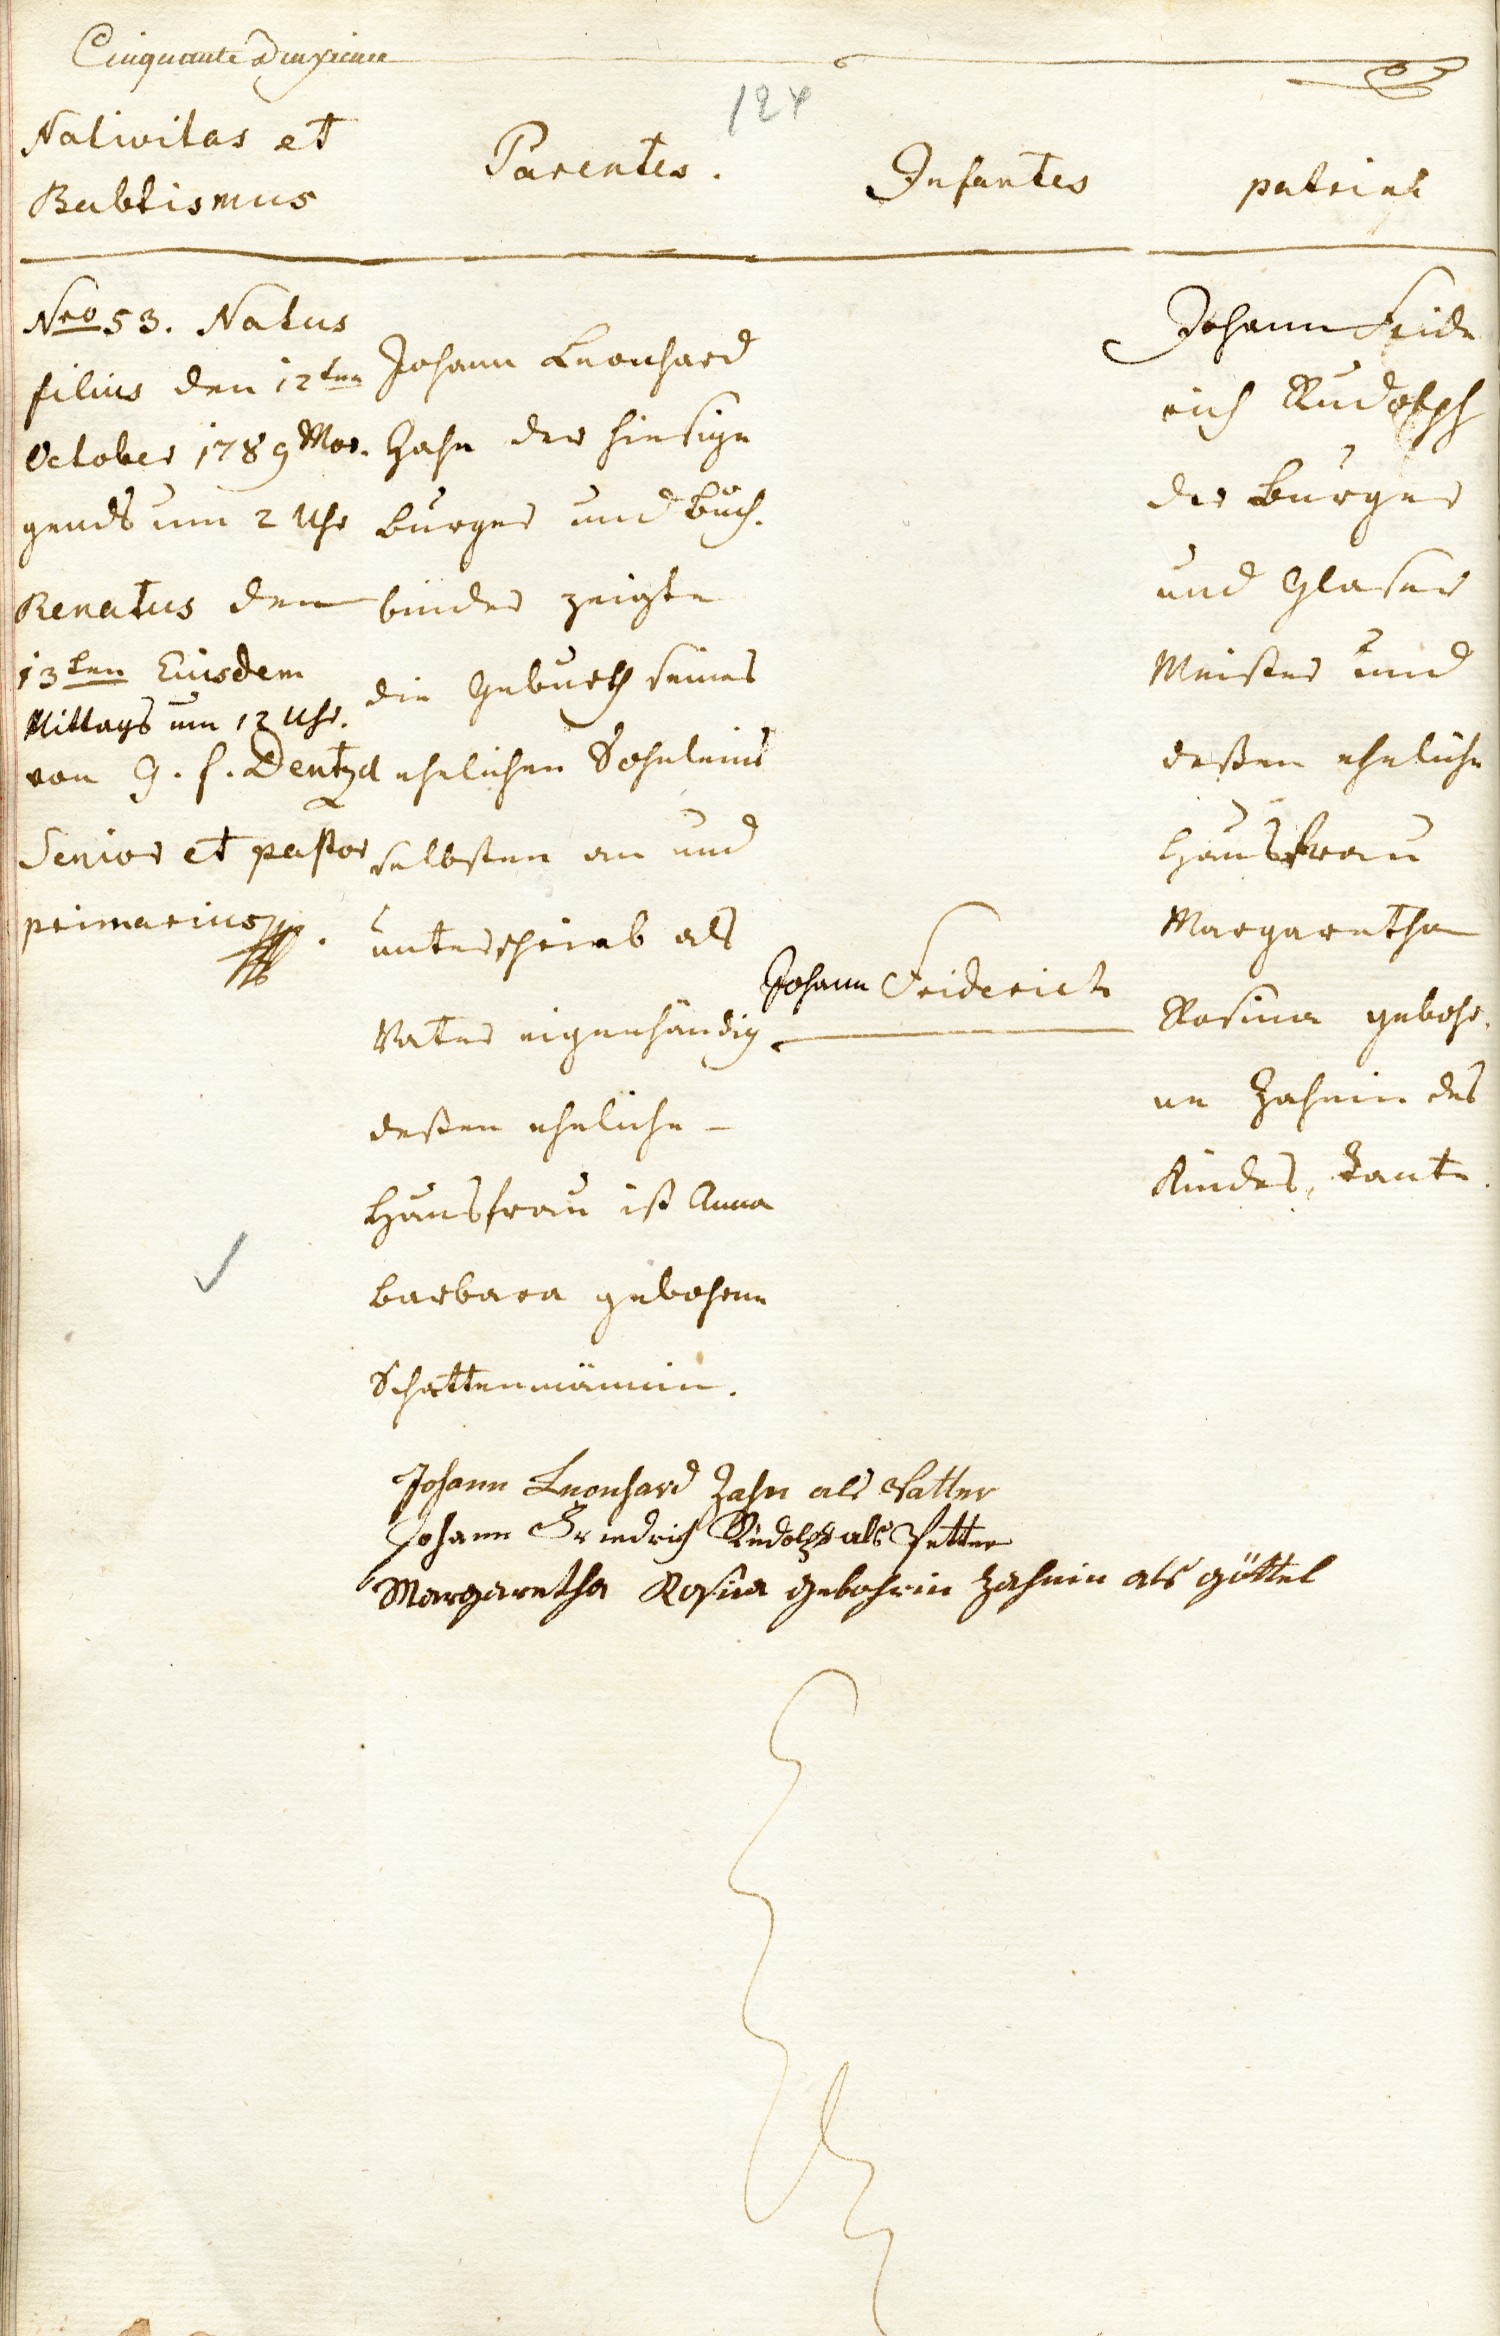 Cinquante Deuxieme
124
Nativitas et
Babtismus
Parentes.
Infantes
patrini
Nro 53. Natus
filius den 12ten
October 1789 Mor-
gends um 2 Uhr
Renatus den
13ten Eiusdem
Mittags um 12 Uhr.
von G. f. Dentzel
Senior et pastor
primarius
Johann Leonhard
Zahn der hiesige
burger und buch-
binder zeigte
die Geburth seines
ehelichen Söhnleins
selbsten an und
unterschrieb als
Vater eigenhändig
deßen eheliche
Hausfrau ist Anna
barbara gebohrne
Schattenmännin.
Johann Friderich
Johann Fride
rich Rudolph
der burger
und Glaser
Meister und
deßen eheliche
Hausfrau
Margaretha
Rosina gebohr-
ne Zahnin des
Kindes, Tante.
Johann Leonhard Zahn als Vatter
Johann Friedrich Rudolph als Petter
Margaretha Rosina gebohrin Zahnin als göttel